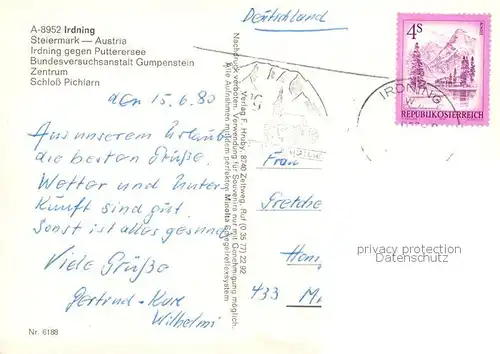 A-8952 Irdning
Steiermark — Austria
Irdning gegen Putterersee
Bundesversuchsanstalt Gumpenstein
Zentrum
Schloß Pichlarn
Deutschland
4S
REPUBLIK ÖSTERREICH
IRDNING
den 15.6.80
Aus unserem Urlaub
die besten Grüße.
Wetter und Unter-
kunft sind gut.
Sonst ist alles gesund
Viele Grüße
Gertrud - Kurt
Wilhelmi
Nr. 6188
Verlag F. Hruby, 8740 Zeltweg, Ruf (0 35 77) 22 92
Nachdruck verboten. Verwendung für Souvenirs nur mit Genehmigung möglich.
Alle Aufnahmen mit dem perfekten Minolta Spiegelreflexsystem
Frau
Gretche
433
privacy protection
Datenschutz